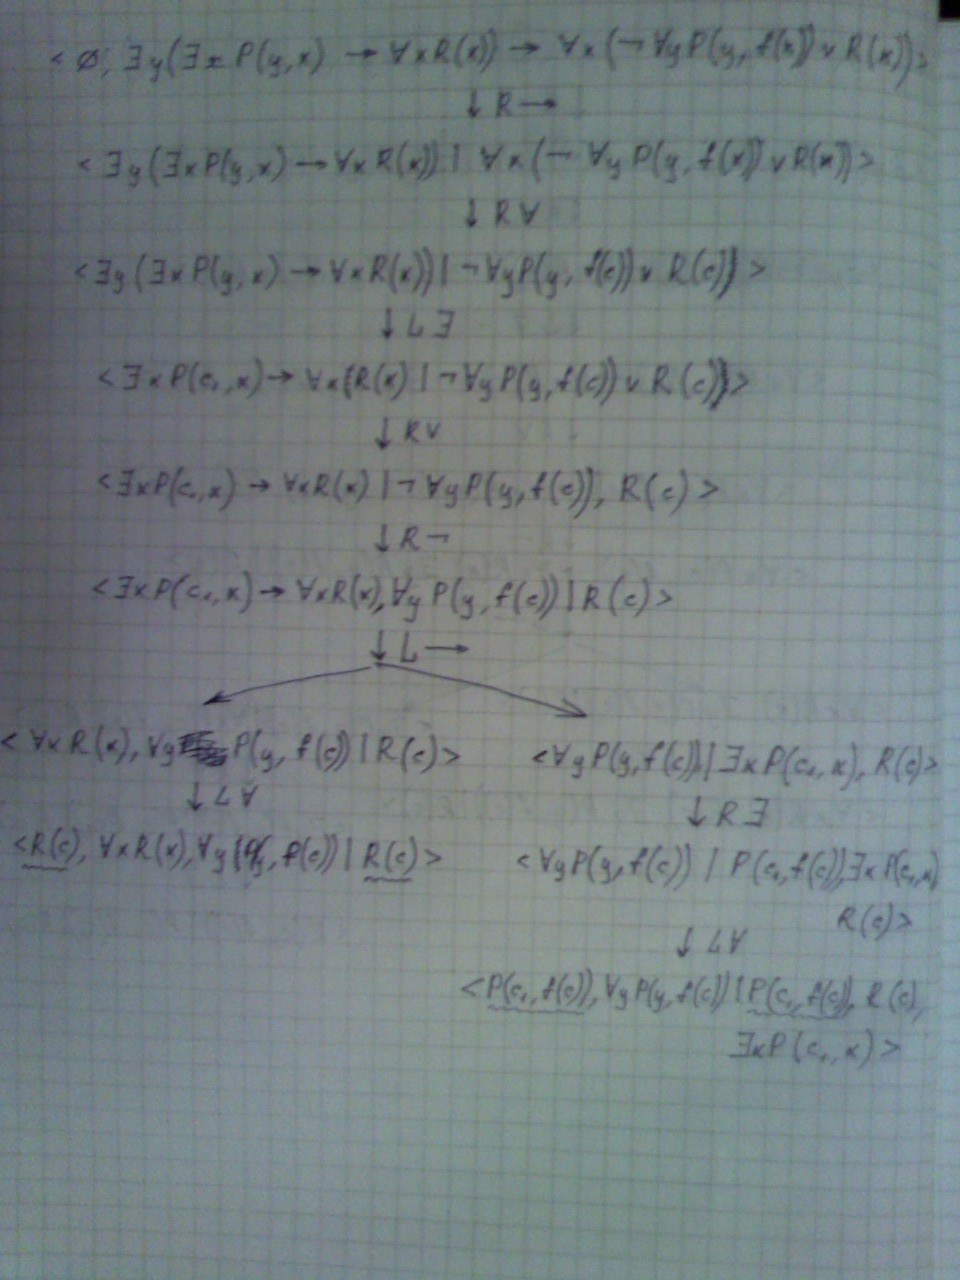 < ∅; ∃y(∃x P(y,x) → ∀xR(x)) → ∀x(¬∀yP(y, f(x)) ∨ R(x))>
↓ R→
< ∃y(∃xP(y,x) → ∀xR(x)) | ∀x(¬ ∀yP(y, f(x)) ∨ R(x)) >
↓ R∀
< ∃y(∃xP(y,x) → ∀xR(x)) | ¬∀yP(y, f(c)) ∨ R(c)) >
↓ L∃
< ∃xP(c₁,x) → ∀x(R(x) | ¬∀yP(y, f(c)) ∨ R(c))>
↓ R∨
< ∃xP(c₁,x) → ∀xR(x) | ¬ ∀yP(y, f(c)), R(c) >
↓ R¬
< ∃xP(c₁,x) → ∀xR(x), ∀y P(y, f(c)) | R(c) >
↓ L→
< ∀xR(x), ∀y P(y, f(c)) | R(c) > <∀yP(y, f(c)) | ∃xP(c₁,x), R(c)>
↓ L∀ ↓ R∃
<R(c), ∀xR(x), ∀y P(y, f(c)) | R(c) > < ∀yP(y, f(c)) | P(c₁, f(c)), ∃xP(c₁,x)
R(c) >
↓ L∀
<P(c₁, f(c)), ∀yP(y, f(c)) | P(c₁, f(c)), R(c),
∃xP(c₁,x) >